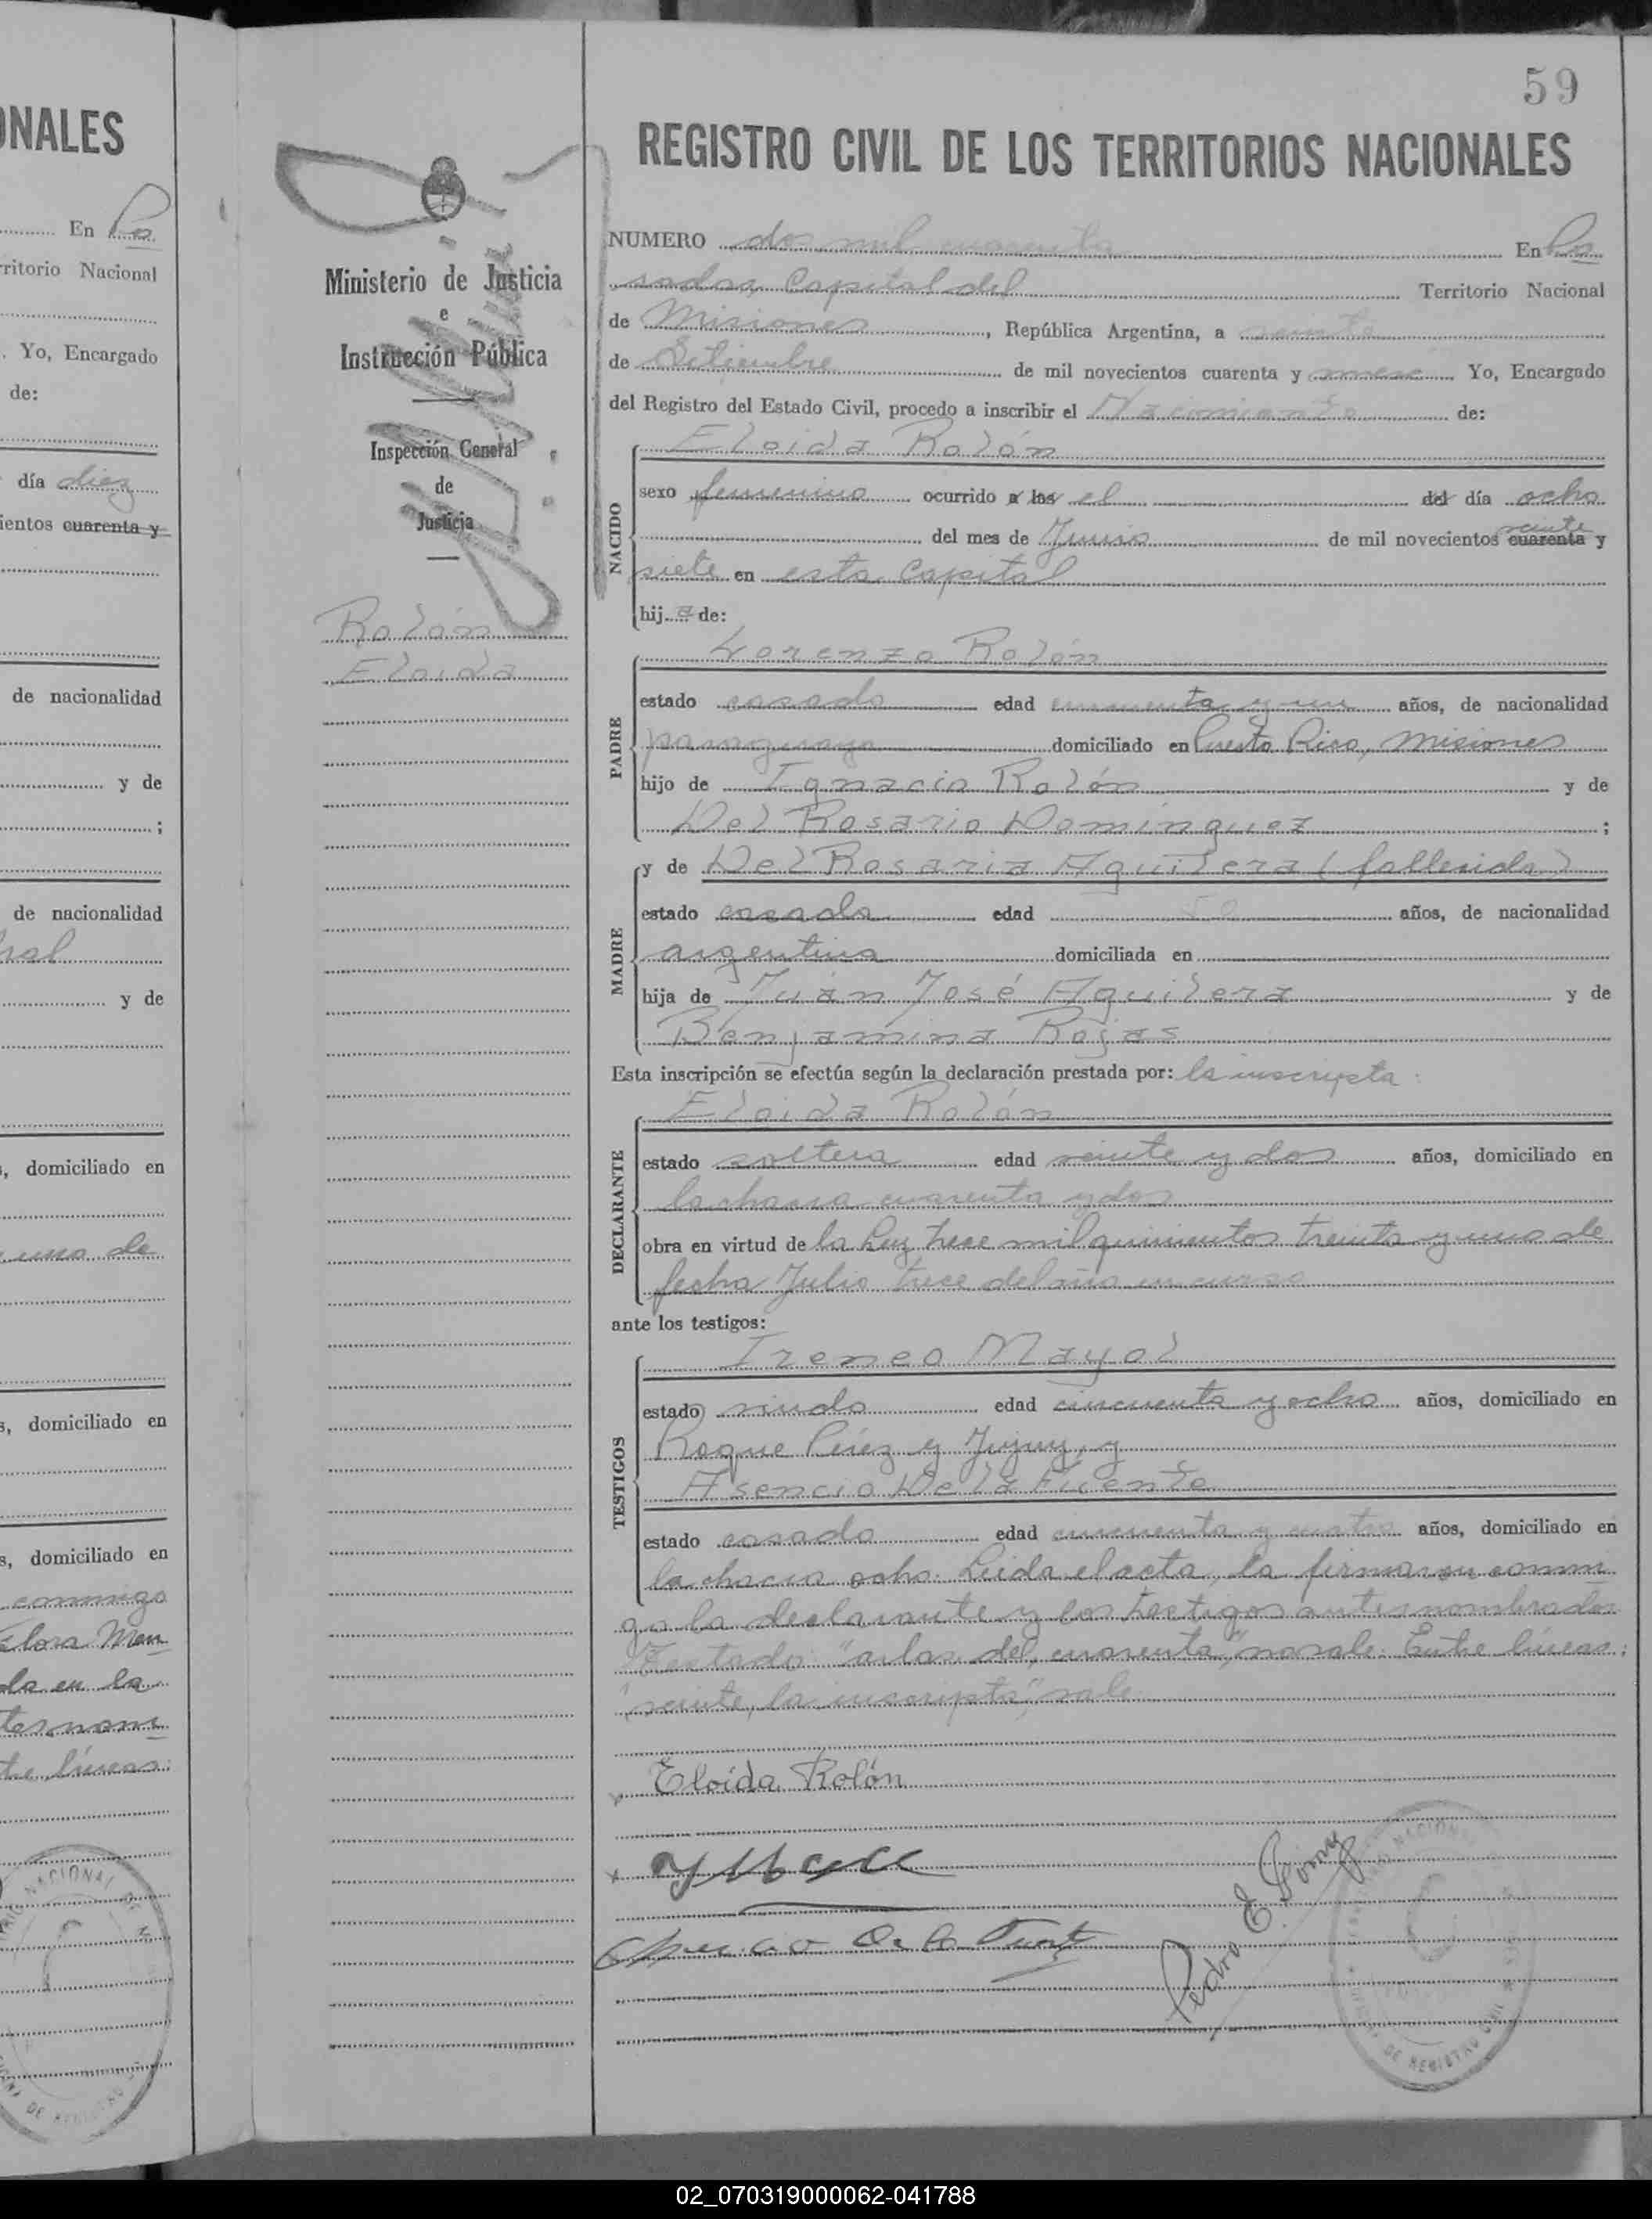 ONALES
En Po
rritorio Nacional
. Yo, Encargado
de:
día diez
ientos cuarenta y
de nacionalidad
y de
;
de nacionalidad
ral
y de
, domiciliado en
uno de
s, domiciliado en
s, domiciliado en
conmigo
Flora Men
da en la
ternom
tre líneas:
Ministerio de Justicia
e
Instrucción Pública
Inspección General
de
Justicia
Rolón
Eloida
59
REGISTRO CIVIL DE LOS TERRITORIOS NACIONALES
NUMERO dos mil cuarenta En Po
sadas, Capital del Territorio Nacional
de Misiones, República Argentina, a veinte
de Setiembre de mil novecientos cuarenta y nueve Yo, Encargado
del Registro del Estado Civil, procedo a inscribir el Nacimiento de:
Eloida Rolón
NACIDO
sexo femenino ocurrido a las el del día ocho
veinte
del mes de Junio de mil novecientos cuarenta y
siete en esta Capital
hija de:
PADRE
Lorenzo Rolón
estado casado edad cincuenta y un años, de nacionalidad
paraguaya domiciliado en Puerto Rico, Misiones
hijo de Ignacio Rolón y de
Del Rosario Domínguez ;
MADRE
y de Del Rosaria Aguilera (fallecida)
estado casada edad años, de nacionalidad
argentina domiciliada en
hija de Juan José Aguilera y de
Benjamina Rojas
Esta inscripción se efectúa según la declaración prestada por: la inscripta:
DECLARANTE
Eloida Rolón
estado soltera edad veinte y dos años, domiciliado en
la chacra cuarenta y dos
obra en virtud de la Ley trece mil quinientos treinta y uno de
fecha Julio trece del año en curso
ante los testigos:
TESTIGOS
Ireneo Mayol
estado viudo edad cincuenta y ocho años, domiciliado en
Roque Pérez y Jujuy, y
Asencio De la Fuente
estado casado edad cincuenta y cuatro años, domiciliado en
la chacra ocho. Leida el acta, la firmaron conmi
go la declarante y los testigos antes nombrados
Testado: "a las, del, cuarenta", no vale. Entre líneas:
"veinte, la inscripta", vale
Eloída Rolón
Pedro E.
02_070319000062-041788